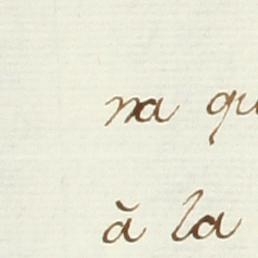 na qu
à la